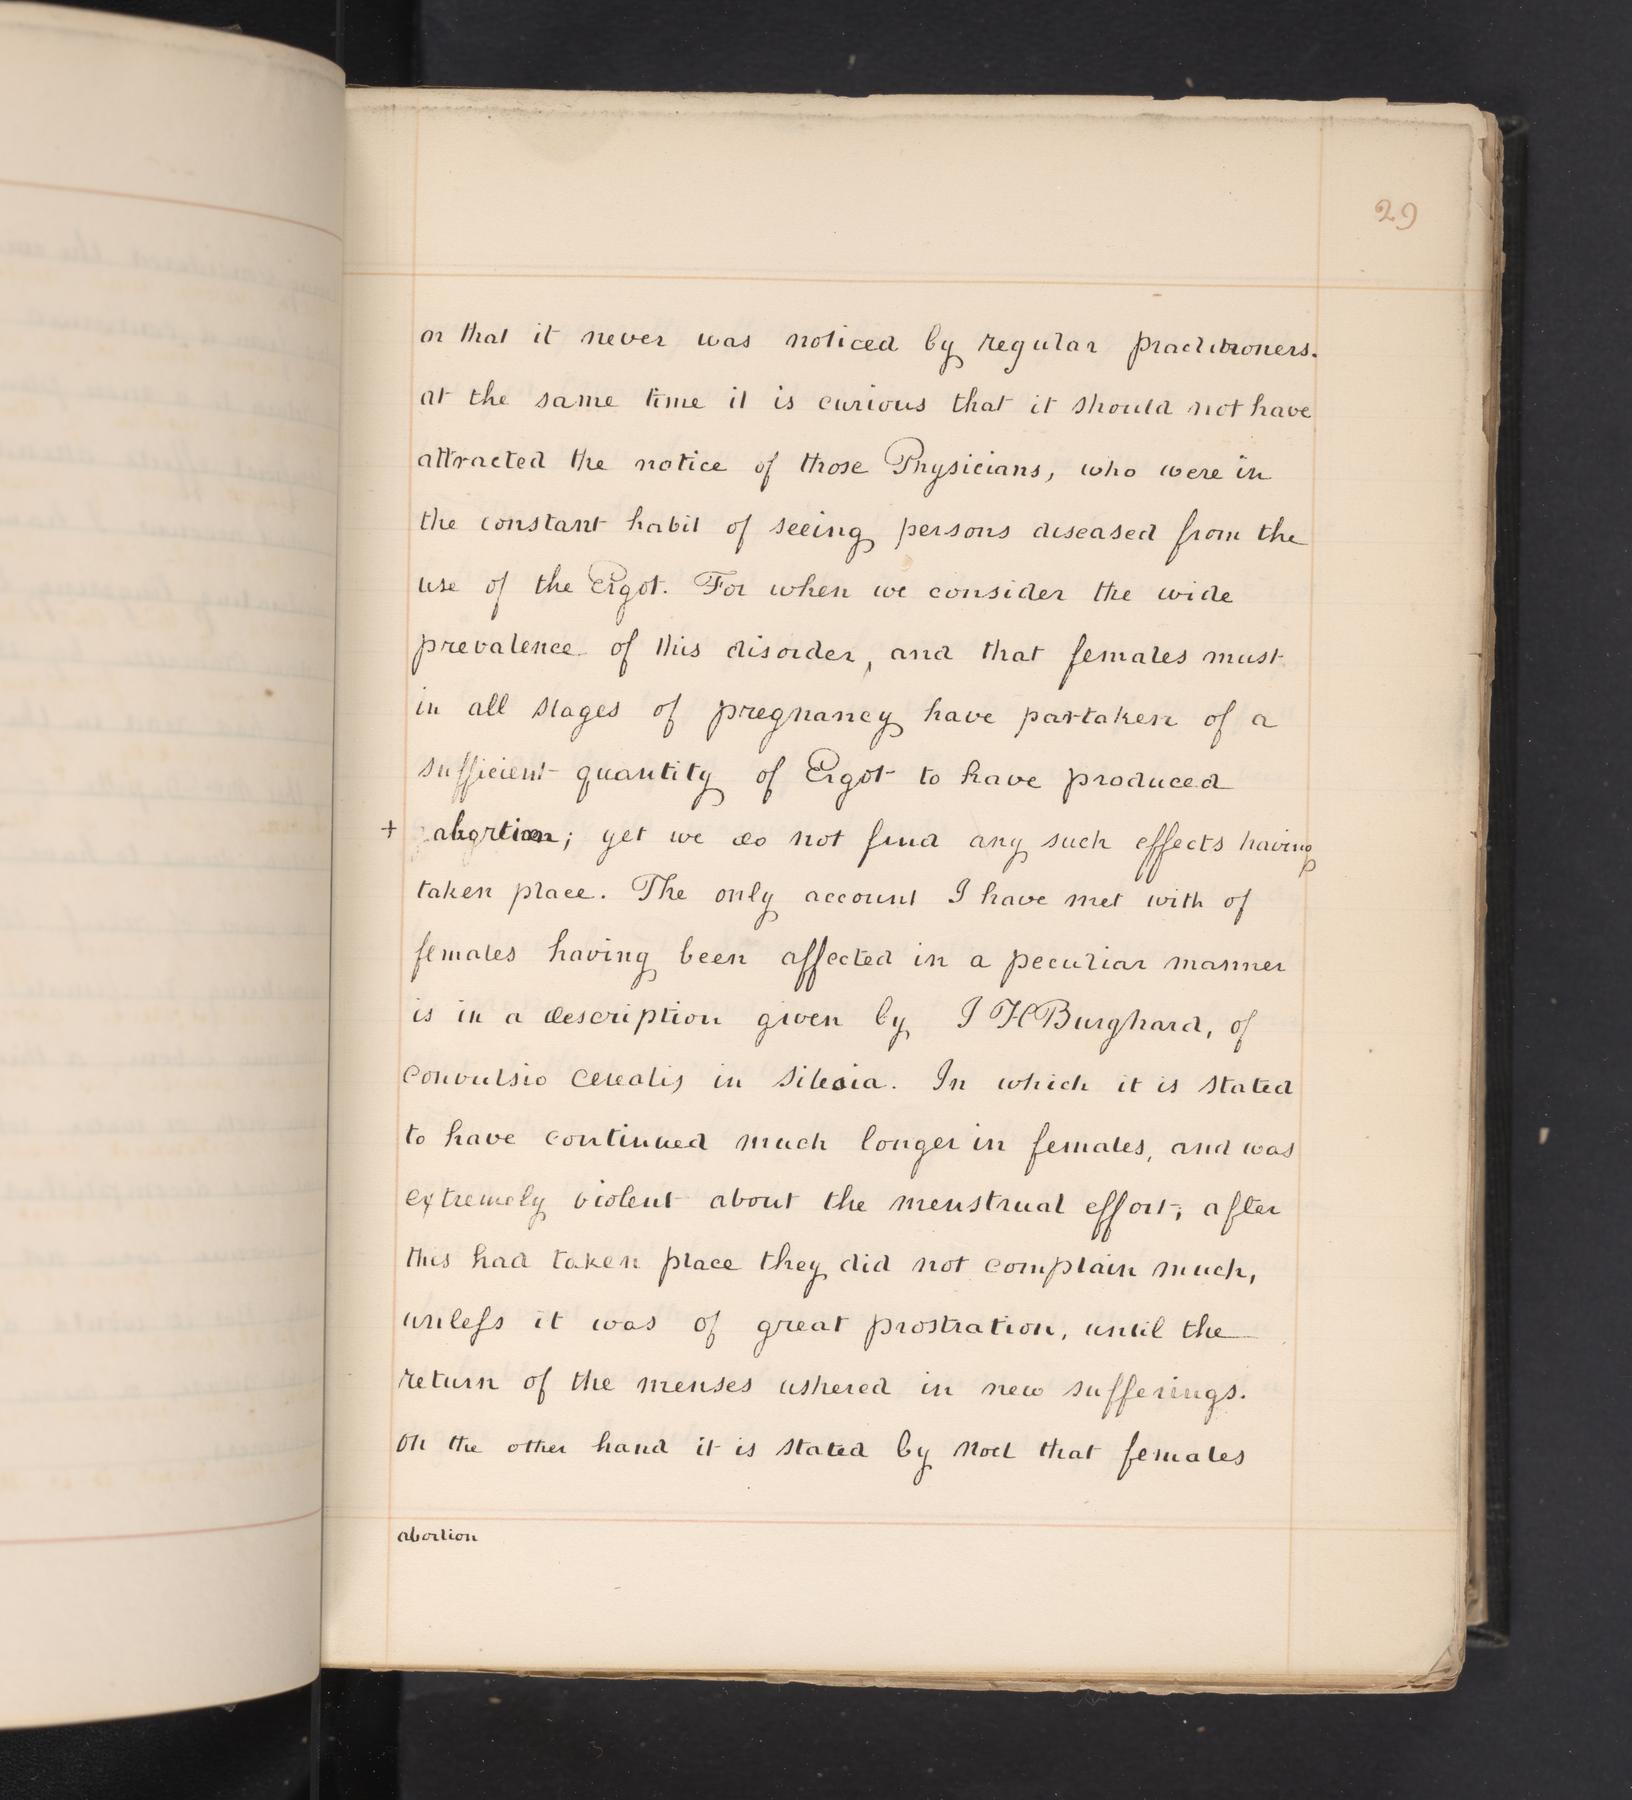 29
or that it never was noticed by regular practitioners.
at the same time it is curious that it should not have
attracted the notice of those Physicians, who were in
the constant habit of seeing persons diseased from the
use of the Ergot. For when we consider the wide
prevalence of this disorder, and that females must
in all stages of pregnancy have partaken of a
sufficient quantity of Ergot to have produced
+ abortion; yet we do not find any such effects having
taken place. The only account I have met with of
females having been affected in a peculiar manner
is in a description given by I H Burghard, of
convulsio cerealis in Silesia. In which it is stated
to have continued much longer in females, and was
extremely violent about the menstrual effort; after
this had taken place they did not complain much,
unleſs it was of great prostration, until the
return of the menses ushered in new sufferings.
On the other hand it is stated by Noel that females
abortion